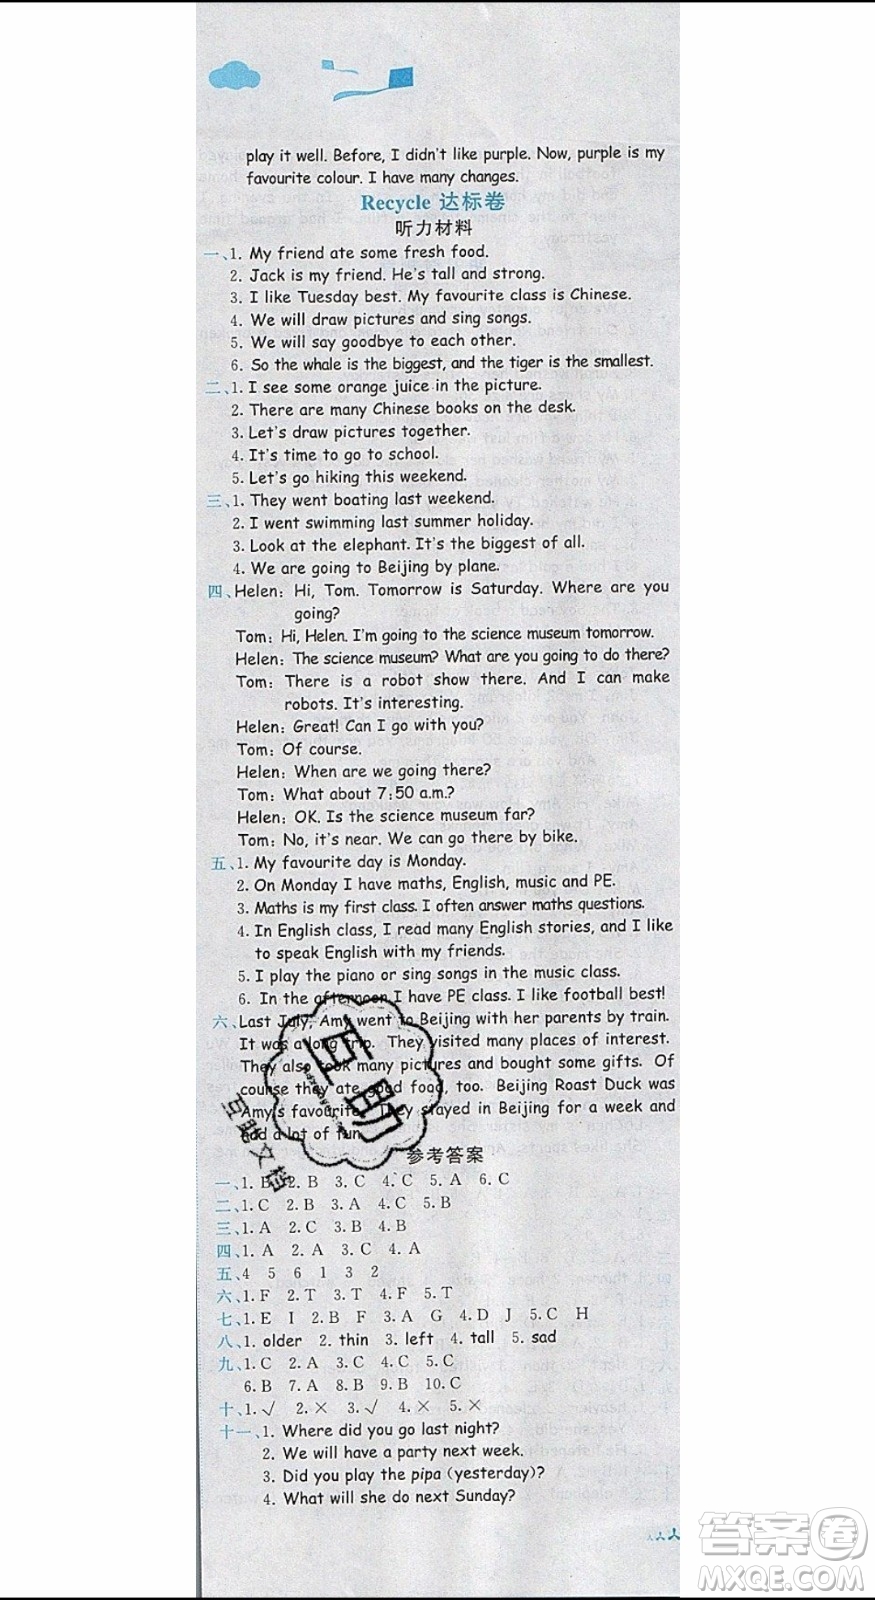 play it well. Before, I didn't like purple. Now, purple is my
favourite colour. I have many changes.
Recycle 达标卷
听力材料
一、1. My friend ate some fresh food.
2. Jack is my friend. He's tall and strong.
3. I like Tuesday best. My favourite class is Chinese.
4. We will draw pictures and sing songs.
5. We will say goodbye to each other.
6. So the whale is the biggest, and the tiger is the smallest.
二、1. I see some orange juice in the picture.
2. There are many Chinese books on the desk.
3. Let's draw pictures together.
4. It's time to go to school.
5. Let's go hiking this weekend.
三、1. They went boating last weekend.
2. I went swimming last summer holiday.
3. Look at the elephant. It's the biggest of all.
4. We are going to Beijing by plane.
四、Helen: Hi, Tom. Tomorrow is Saturday. Where are you
going?
Tom: Hi, Helen. I'm going to the science museum tomorrow.
Helen: The science museum? What are you going to do there?
Tom: There is a robot show there. And I can make
robots. It's interesting.
Helen: Great! Can I go with you?
Tom: Of course.
Helen: When are we going there?
Tom: What about 7:50 a.m.?
Helen: OK. Is the science museum far?
Tom: No, it's near. We can go there by bike.
五、1. My favourite day is Monday.
2. On Monday I have maths, English, music and PE.
3. Maths is my first class. I often answer maths questions.
4. In English class, I read many English stories, and I like
to speak English with my friends.
5. I play the piano or sing songs in the music class.
6. In the afternoon I have PE class. I like football best!
六、Last July, Amy went to Beijing with her parents by train.
It was a long trip. They visited many places of interest.
They also took many pictures and bought some gifts. Of
course they ate good food, too. Beijing Roast Duck was
Amy's favourite. They stayed in Beijing for a week and
had a lot of fun.
参考答案
一、1. B 2. B 3. C 4. C 5. A 6. C
二、1. C 2. B 3. A 4. B 5. A
三、1. A 2. C 3. B 4. B
四、1. A 2. A 3. C 4. A
五、4 5 6 1 3 2
六、1. F 2. T 3. T 4. F 5. T
七、1. E I 2. B F 3. A G 4. D J 5. C H
八、1. older 2. thin 3. left 4. tall 5. sad
九、1. C 2. A 3. C 4. C 5. C
6. B 7. A 8. B 9. B 10. C
十、1. √ 2. × 3. √ 4. × 5. ×
十一、1. Where did you go last night?
2. We will have a party next week.
3. Did you play the pipa (yesterday)?
4. What will she do next Sunday?
互助
互助文档
答案圈
MXQE.COM